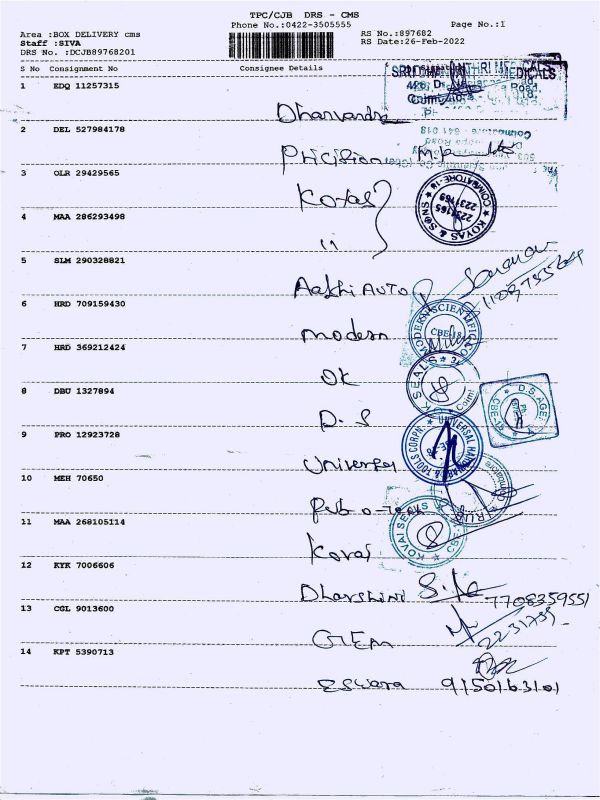 TPC/CJB DRS - CMS
Phone No.:0422-3505555
Page No.:1
Area :BOX DELIVERY cms
RS No.:897682
Staff :SIVA
RS Date:26-Feb-2022
DRS No. :DCJB89768201
S No Consignment No Consignee Details
1 EDQ 11257315
Coimbatore
2 DEL 527984178
Coimbatore - 641 018
3 OLR 29429565
Kovas
KOVAS & SONS
COIMBATORE-18
2231169
4 MAA 286293498
11
5 SLM 290328821
Aakhi Auto
6 HRD 709159430
modern
MODERN SCIENTIFIC CO
CBE-18
7 HRD 369212424
OK
K SEALS
8 DBU 1327894
D.S
D.S. AGE
CBE-18
9 PRO 12923728
& TOOLS CORPN. UNIVERSAL
10 MEH 70650
11 MAA 268105114
Kovai
KOVAI SEALS
12 KYK 7006606
Dharshini
7708359551
13 CGL 9013600
GEM
14 KPT 5390713
Eswara 9150163101